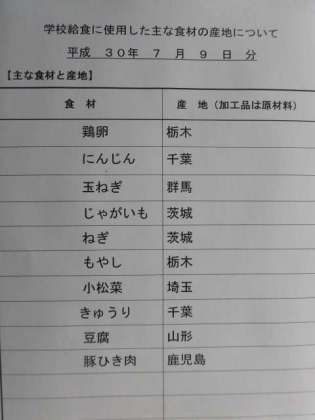 学校給食に使用した主な食材の産地について
平成 30年 7 月 9 日 分
【主な食材と産地】
食 材 産 地（加工品は原材料）
鶏卵 栃木
にんじん 千葉
玉ねぎ 群馬
じゃがいも 茨城
ねぎ 茨城
もやし 栃木
小松菜 埼玉
きゅうり 千葉
豆腐 山形
豚ひき肉 鹿児島